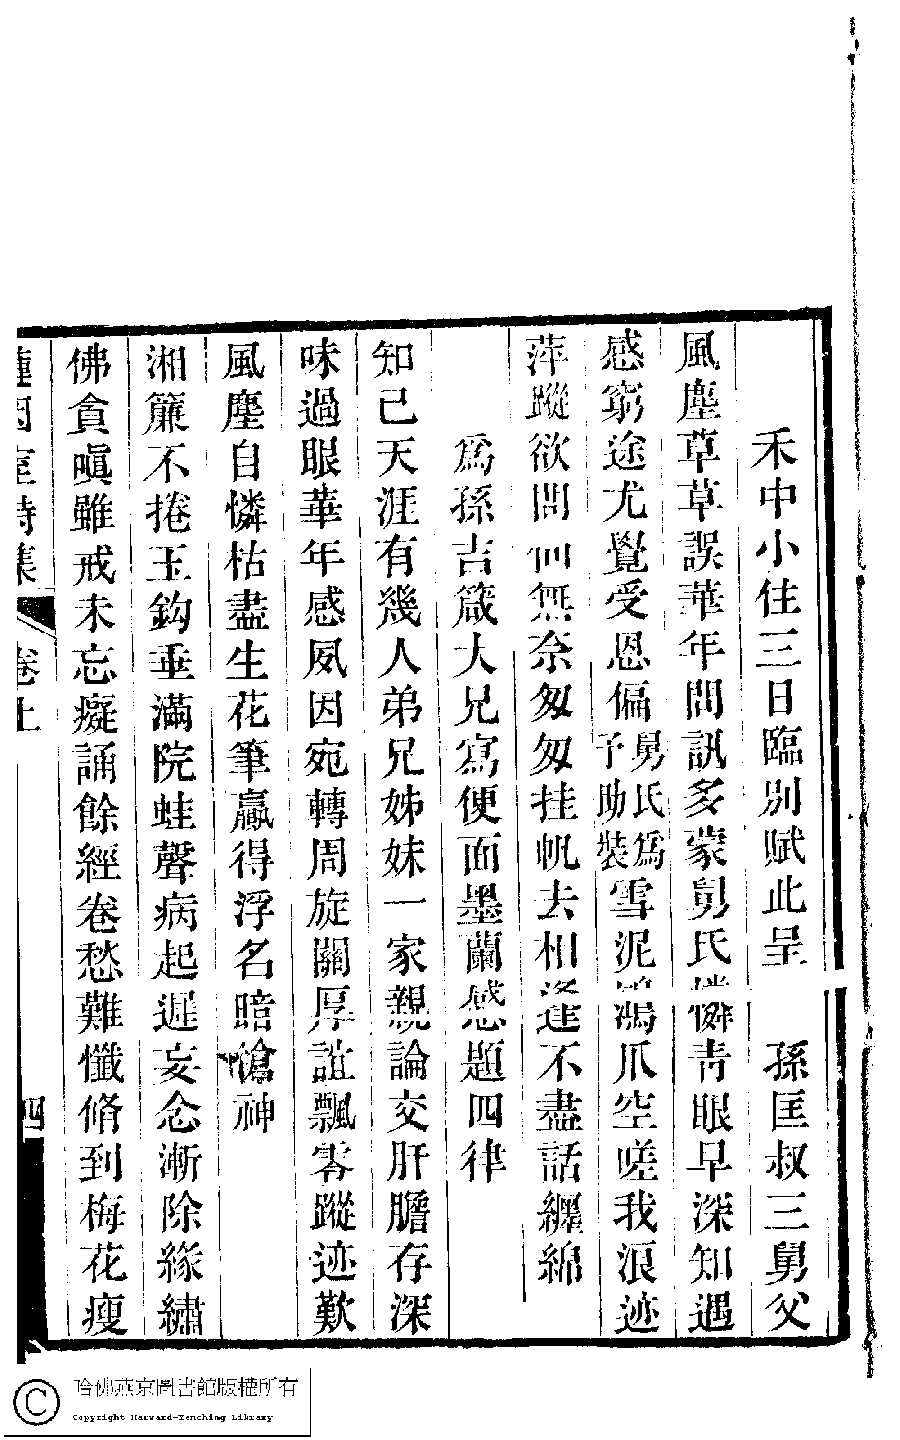 禾中小住三日臨別賦此呈　孫匡叔三舅父
風塵草草誤華年問訊多蒙舅氏憐青眼早深知遇
感窮途尤覺受恩偏舅氏爲予助裝雪泥鴻爪空嗟我浪迹
萍蹤欲問無奈匆匆挂帆去相逢不盡話纏綿
爲孫吉箴大兄寫便面墨蘭感題四律
知己天涯有幾人弟兄姊妹一家親論交肝膽存深
味過眼華年感夙因宛轉周旋關厚誼飄零蹤迹歎
風塵自憐枯盡生花筆贏得浮名暗愴神
湘簾不捲玉鈎垂滿院蛙聲病起遲妄念漸除緣繡
佛貪嗔雖戒未忘癡誦餘經卷愁難懺脩到梅花瘦
蓮因室詩集
卷上
四
哈佛燕京圖書館版權所有
Copyright Harvard-Yenching Library